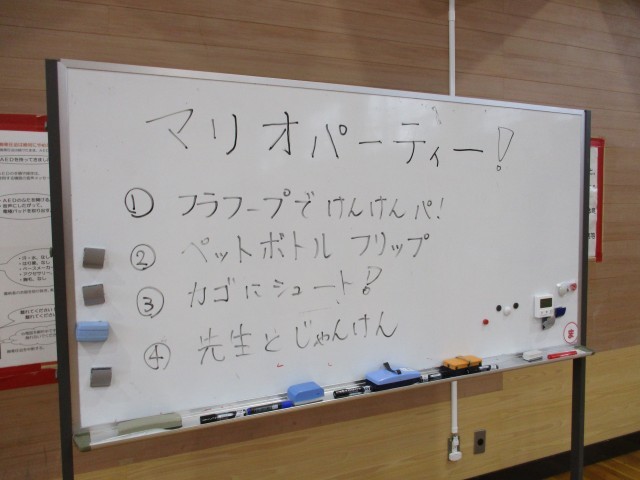 マリオパーティー！
① フラフープでけんけんパ！
② ペットボトルフリップ
③ カゴにシュート！
④ 先生とじゃんけん